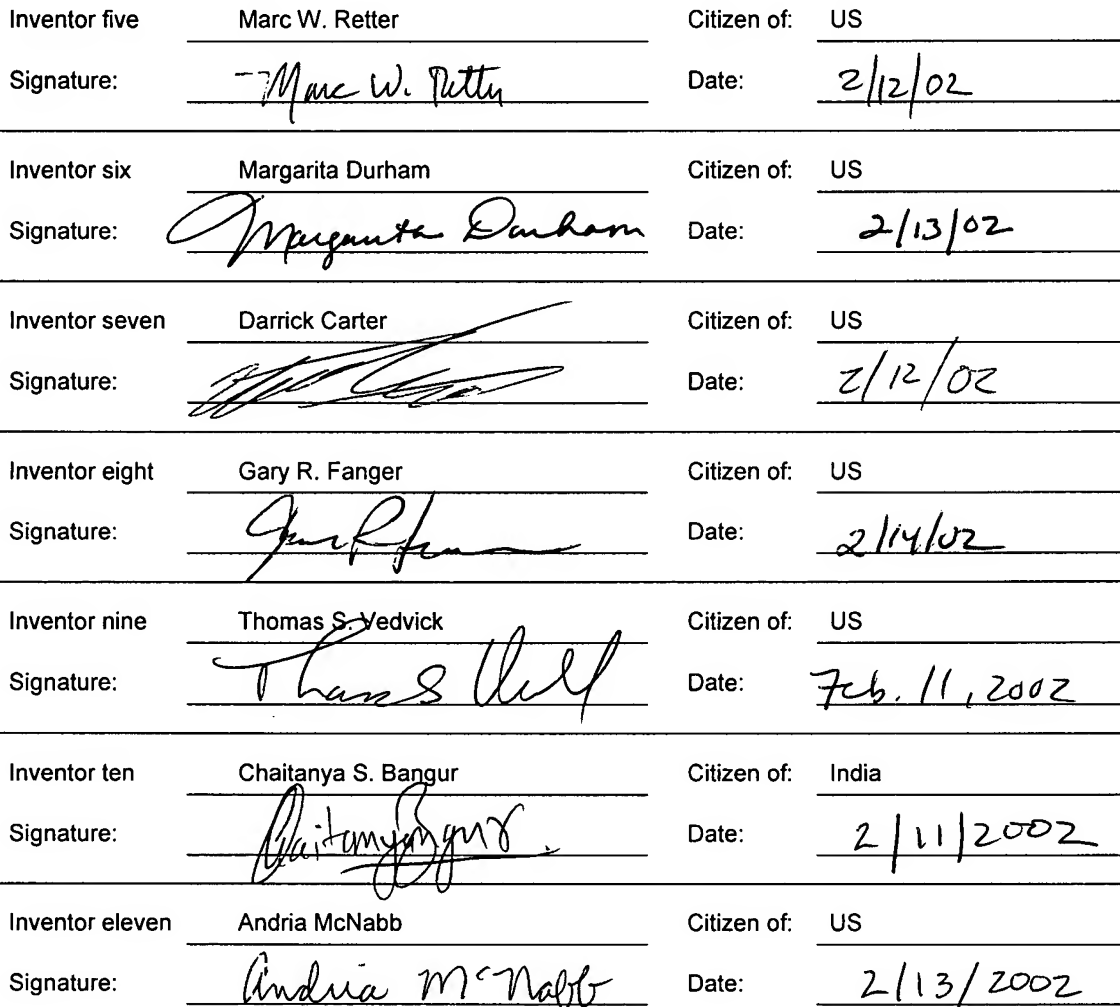 Inventor five Marc W. Retter Citizen of: US
Signature: Marc W. Retter Date: 2/12/02
Inventor six Margarita Durham Citizen of: US
Signature: Margarita Durham Date: 2/13/02
Inventor seven Darrick Carter Citizen of: US
Signature: Date: 2/12/02
Inventor eight Gary R. Fanger Citizen of: US
Signature: Date: 2/14/02
Inventor nine Thomas S. Vedvick Citizen of: US
Signature: Date: Feb. 11, 2002
Inventor ten Chaitanya S. Bangur Citizen of: India
Signature: Chaitanya Bangur Date: 2/11/2002
Inventor eleven Andria McNabb Citizen of: US
Signature: Andria McNabb Date: 2/13/2002